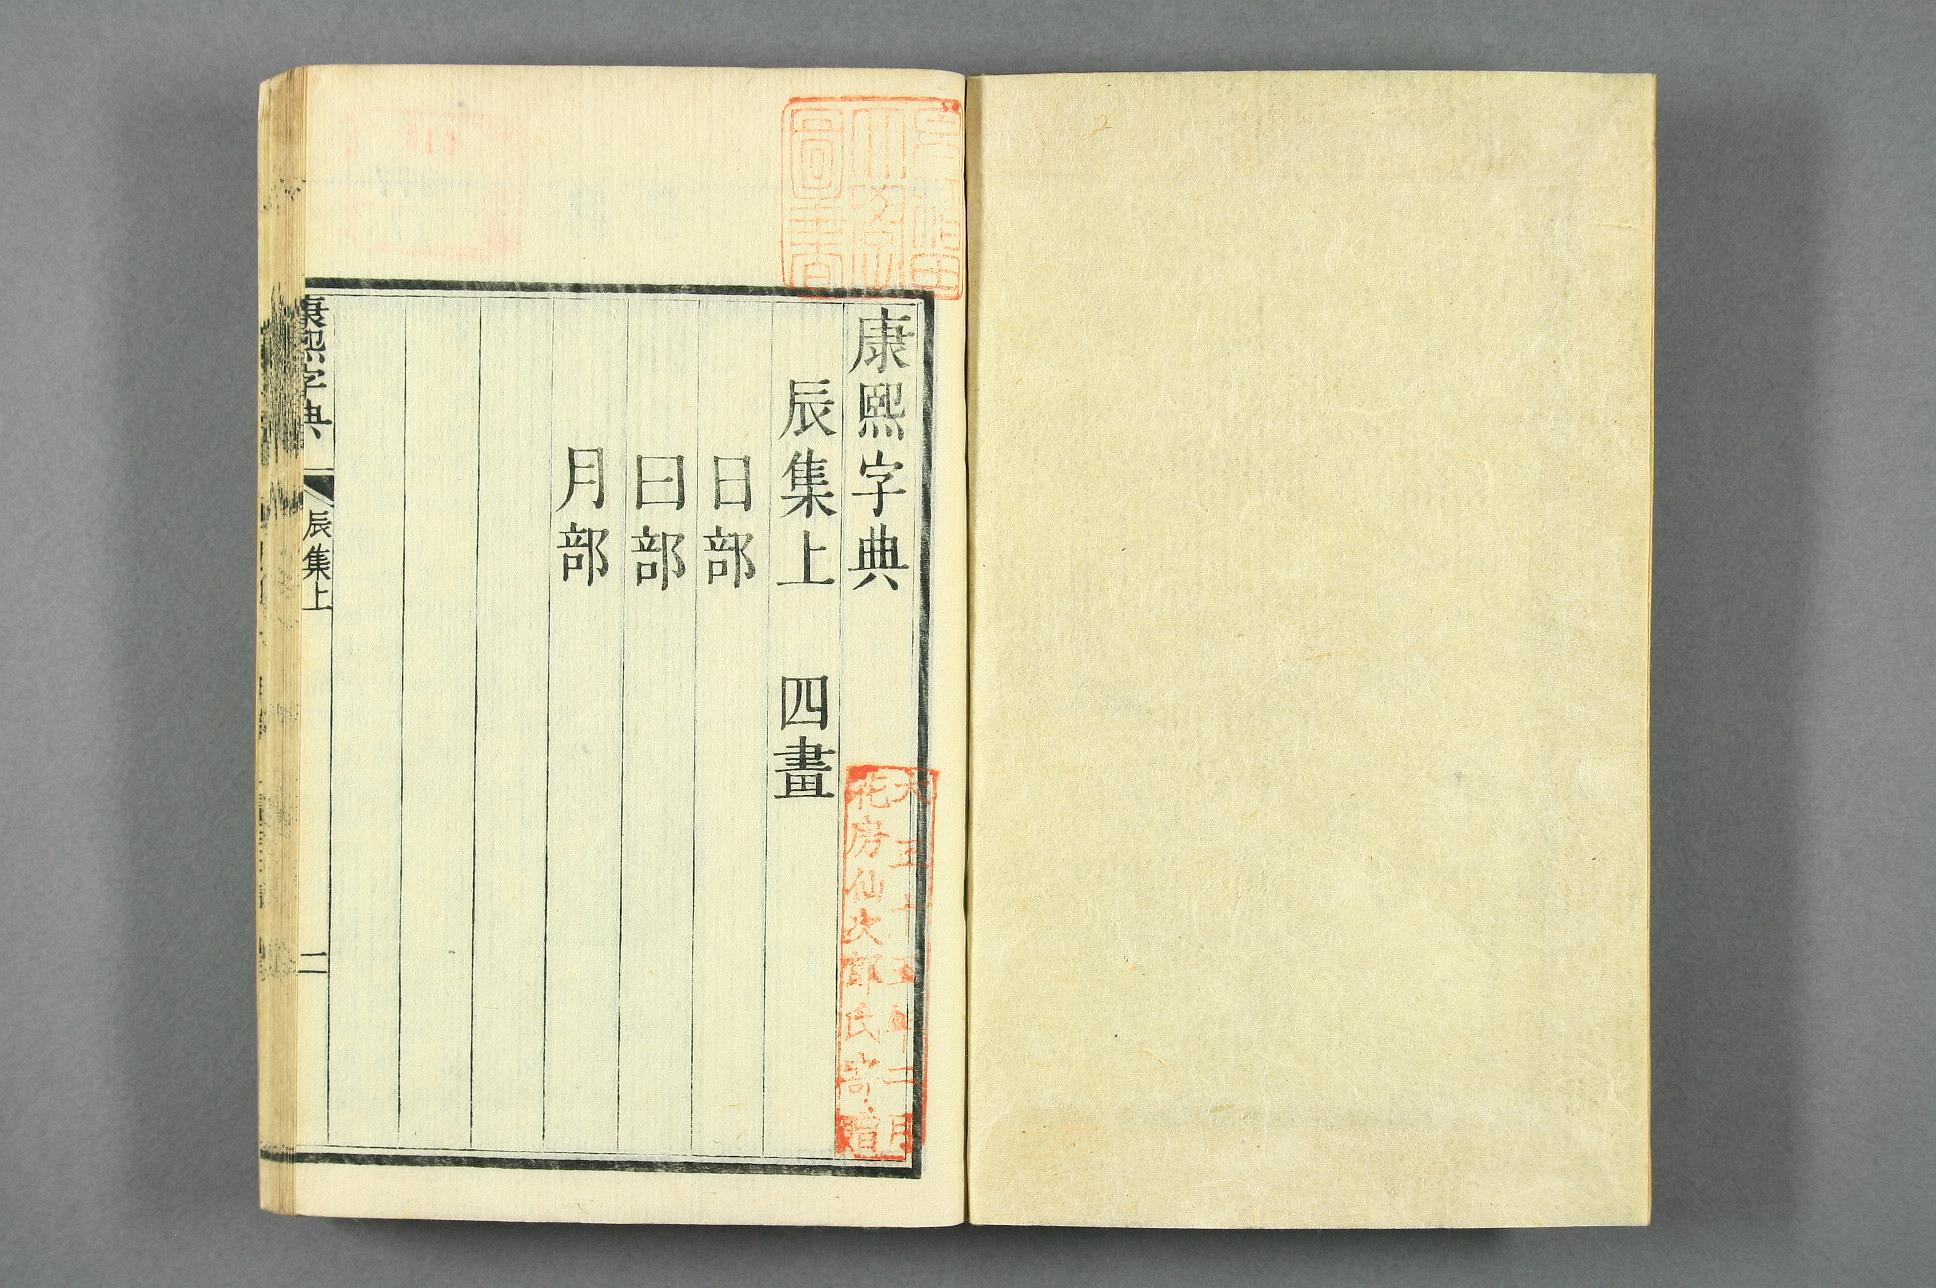 早稻田
大學
圖書
康熙字典
辰集上　四畫
日部
曰部
月部
大正十五年二月
花房仙次郎氏寄贈
康熙字典　辰集上　二